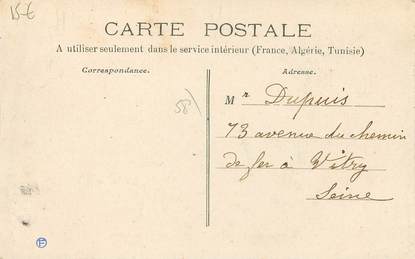 15€
CARTE POSTALE
A utiliser seulement dans le service intérieur (France, Algérie, Tunisie)
Correspondance.
Adresse.
58)
Mr Dupuis
73 avenue du chemin
de fer à Vitry
Seine